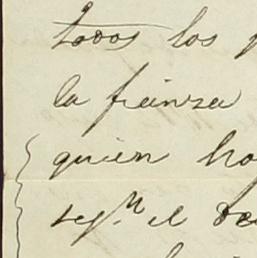 todos los
la fianza
quien
segn. el